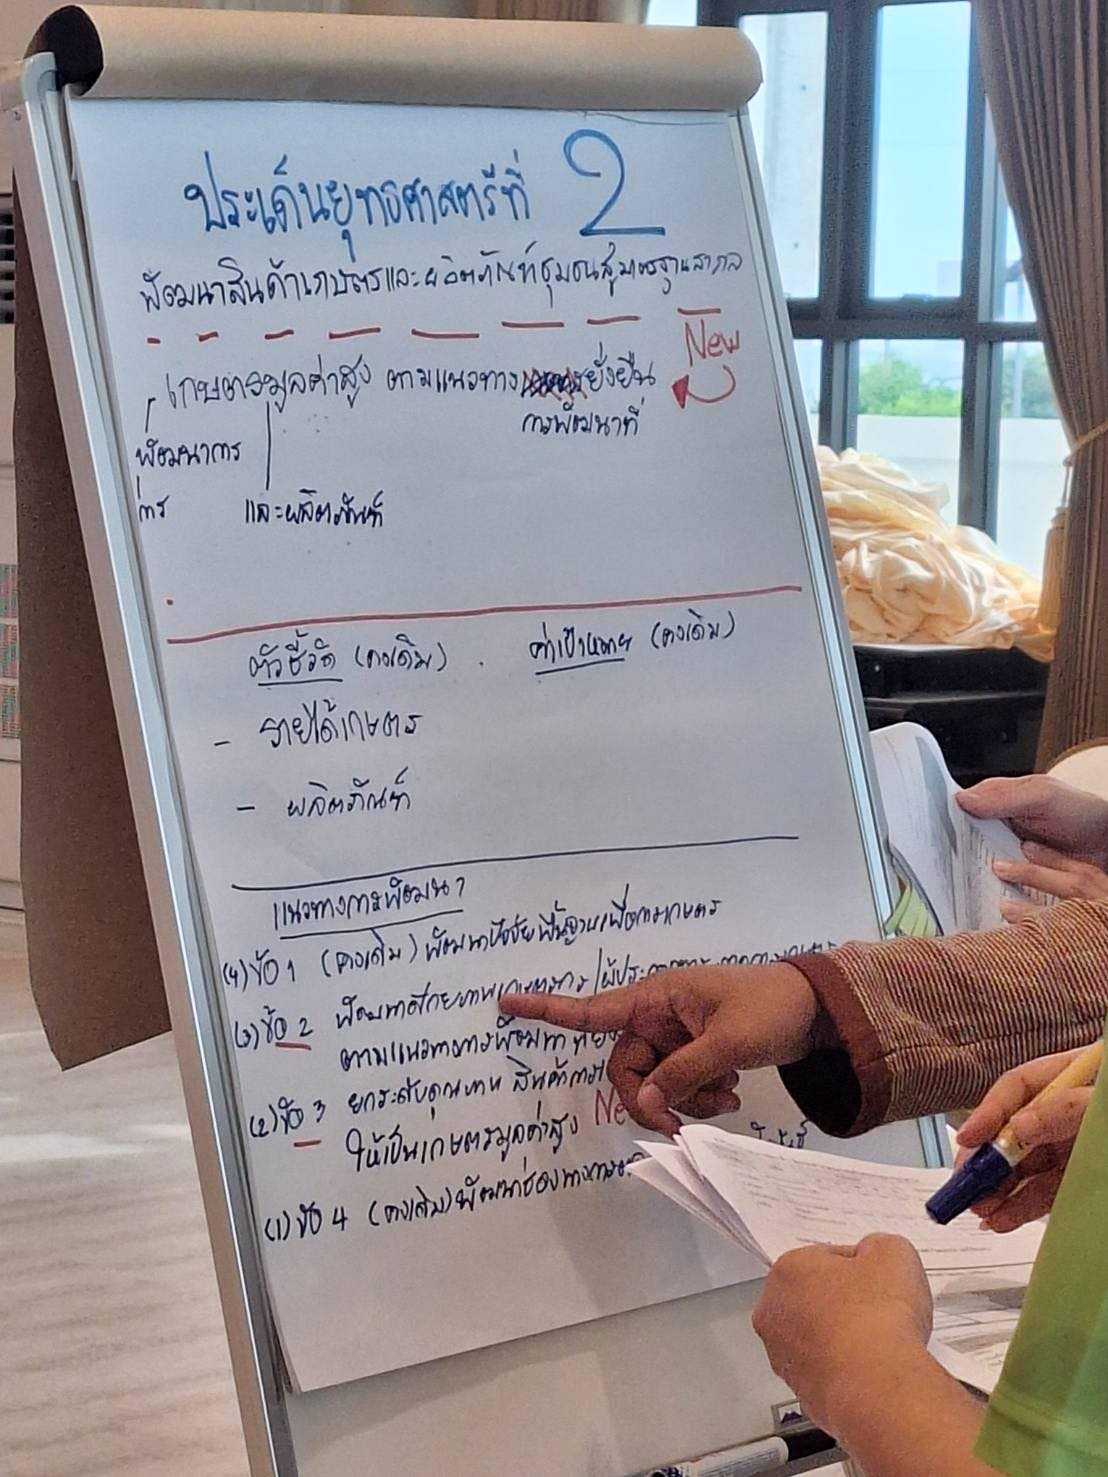 ประเด็นยุทธศาสตร์ที่ 2
พัฒนาสินค้าเกษตรและผลิตภัณฑ์ชุมชนสู่มาตรฐานสากล
New
เกษตรมูลค่าสูง ตามแนวทาง ยั่งยืน
การพัฒนาที่
พัฒนาการ
และผลิตภัณฑ์
ตัวชี้วัด (คงเดิม) ค่าเป้าหมาย (คงเดิม)
- รายได้เกษตร
- ผลิตภัณฑ์
แนวทางการพัฒนา
(4) ข้อ 1 (คงเดิม) พัฒนาปัจจัยพื้นฐานเพื่อการเกษตร
(3) ข้อ 2 พัฒนาศักยภาพเกษตรกร /
ตามแนวทางการพัฒนาที่
(2) ข้อ 3 ยกระดับคุณภาพ สินค้า
ให้เป็นเกษตรมูลค่าสูง
(1) ข้อ 4 (คงเดิม) พัฒนาช่องทางการ